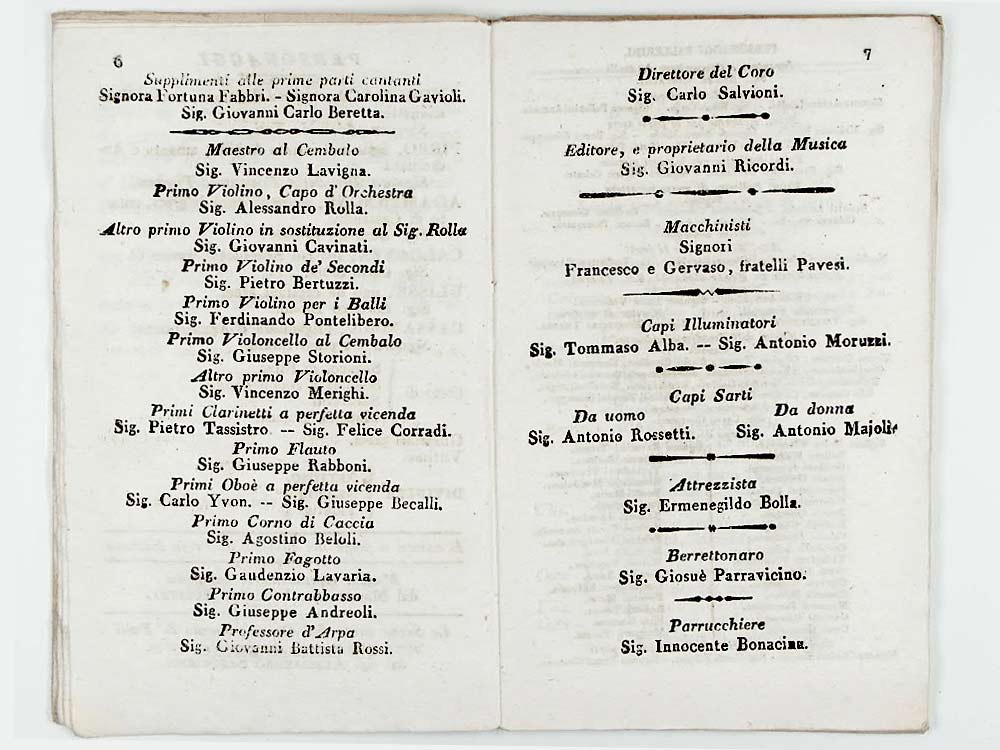 6
Supplimenti alle prime parti cantanti
Signora Fortuna Fabbri. - Signora Carolina Gavioli.
Sig. Giovanni Carlo Beretta.
Maestro al Cembalo
Sig. Vincenzo Lavigna.
Primo Violino, Capo d'Orchestra
Sig. Alessandro Rolla.
Altro primo Violino in sostituzione al Sig. Rolla
Sig. Giovanni Cavinati.
Primo Violino de' Secondi
Sig. Pietro Bertuzzi.
Primo Violino per i Balli
Sig. Ferdinando Pontelibero.
Primo Violoncello al Cembalo
Sig. Giuseppe Storioni.
Altro primo Violoncello
Sig. Vincenzo Merighi.
Primi Clarinetti a perfetta vicenda
Sig. Pietro Tassistro -- Sig. Felice Corradi.
Primo Flauto
Sig. Giuseppe Rabboni.
Primi Oboè a perfetta vicenda
Sig. Carlo Yvon. -- Sig. Giuseppe Becalli.
Primo Corno di Caccia
Sig. Agostino Beloli.
Primo Fagotto
Sig. Gaudenzio Lavaria.
Primo Contrabbasso
Sig. Giuseppe Andreoli.
Professore d'Arpa
Sig. Giovanni Battista Rossi.
7
Direttore del Coro
Sig. Carlo Salvioni.
Editore, e proprietario della Musica
Sig. Giovanni Ricordi.
Macchinisti
Signori
Francesco e Gervaso, fratelli Pavesi.
Capi Illuminatori
Sig. Tommaso Alba. -- Sig. Antonio Moruzzi.
Capi Sarti
Da uomo Da donna
Sig. Antonio Rossetti. Sig. Antonio Majoli
Attrezzista
Sig. Ermenegildo Bolla.
Berrettonaro
Sig. Giosuè Parravicino.
Parrucchiere
Sig. Innocente Bonacina.